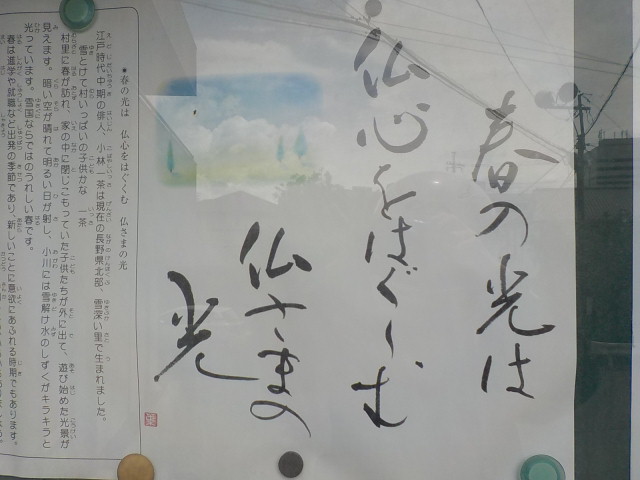 春の光は
仏心をはぐくむ
仏さまの
光
●春の光は 仏心をはぐくむ 仏さまの光
江戸時代中期の俳人、小林一茶は現在の長野県北部、雪深い里で生まれました。
雪とけて村いっぱいの子供かな 一茶
村里に春が訪れ、家の中に閉じこもっていた子供たちが外に出て、遊び始めた光景が
見えます。暗い空が晴れて明るい日が射し、小川には雪解け水のしずくがキラキラと
光っています。雪国ならではのうれしい春です。
春は進学や就職など出発の季節であり、新しいことに意欲にあふれる時期でもあります。